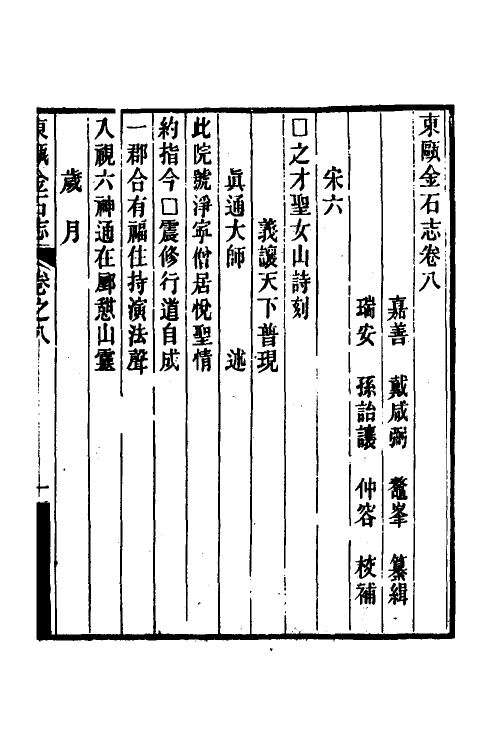 東甌金石志卷八
嘉善 戴咸弼 鼇峯 纂緝
瑞安 孫詒讓 仲容 校補
宋六
□之才聖女山詩刻
義讓天下普現
眞通大師 述
此院號淨寧僧居悅聖情
約指今□震修行道自成
一郡合有福住持演法聲
入視六神通在郡懇山靈
歲月
東甌金石志 卷之八 一